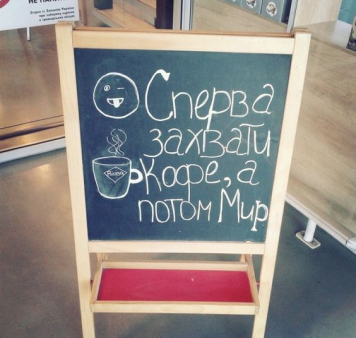 Сперва
захвати
Кофе, а
потом Мир